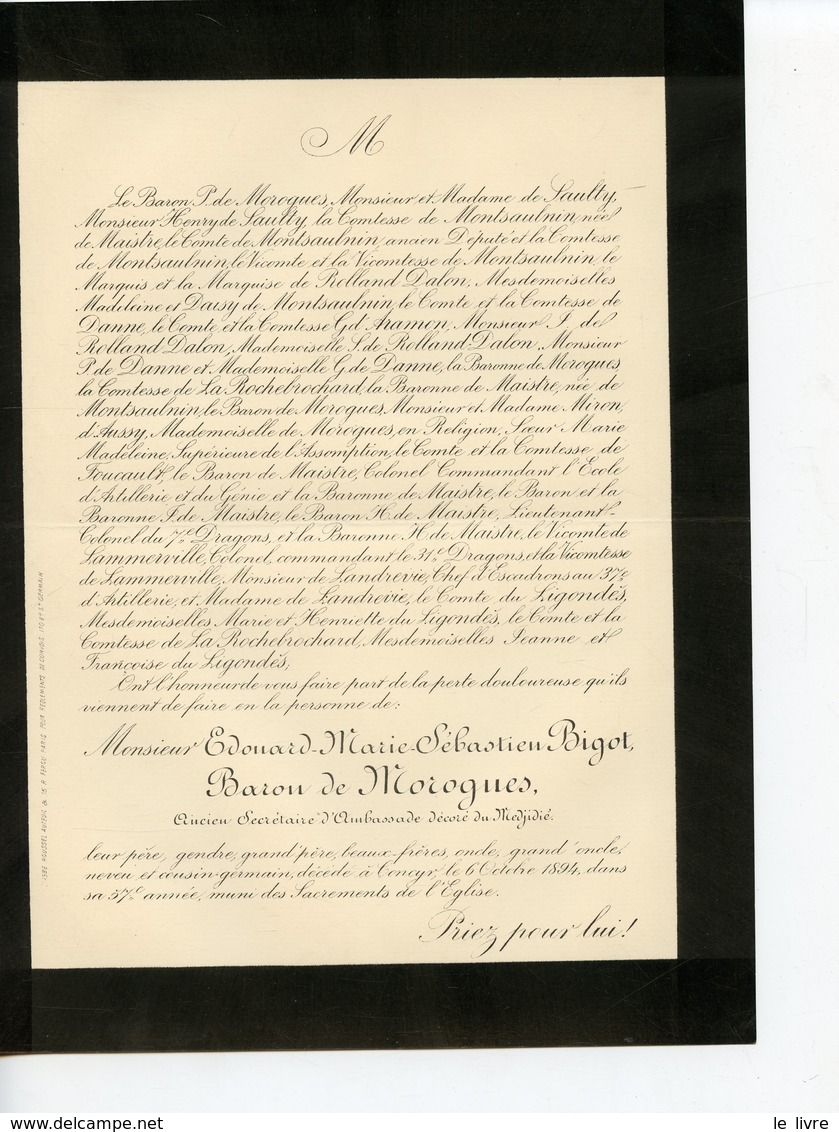 M
Le Baron P. de Morogues, Monsieur et Madame de Saulty,
Monsieur Henry de Saulty, la Comtesse de Montsaulnin, née
de Maistre, le Comte de Montsaulnin, ancien Député et la Comtesse
de Montsaulnin, le Vicomte et la Vicomtesse de Montsaulnin, le
Marquis et la Marquise de Rolland Dalon, Mesdemoiselles
Madeleine et Daisy de Montsaulnin, le Comte et la Comtesse de
Danne, le Comte et la Comtesse G. d'Aramon, Monsieur J. de
Rolland Dalon, Mademoiselle S. de Rolland-Dalon, Monsieur
P. de Danne et Mademoiselle G. de Danne, la Baronne de Morogues,
la Comtesse de La Rochebrochard, la Baronne de Maistre, née de
Montsaulnin, le Baron de Morogues, Monsieur et Madame Miron,
d'Aussy, Mademoiselle de Morogues, en Religion, Sœur Marie
Madeleine, Supérieure de l'Assomption, le Comte et la Comtesse de
Foucault, le Baron de Maistre, Colonel Commandant l'Ecole
d'Artillerie et du Génie et la Baronne de Maistre, le Baron et la
Baronne F. de Maistre, le Baron H. de Maistre, Lieutenant-
Colonel du 7e Dragons, et la Baronne H. de Maistre, le Vicomte de
Lammerville, Colonel, commandant le 31e Dragons, et la Vicomtesse
de Lammerville, Monsieur de Landrevie, Chef d'Escadrons au 37e
d'Artillerie, et Madame de Landrevie, le Comte du Ligondès,
Mesdemoiselles Marie et Henriette du Ligondès, le Comte et la
Comtesse de La Rochebrochard, Mesdemoiselles Jeanne et
Françoise du Ligondès,
Ont l'honneur de vous faire part de la perte douloureuse qu'ils
viennent de faire en la personne de:
Monsieur Edouard-Marie-Sébastien Bigot,
Baron de Morogues,
Ancien Secrétaire d'Ambassade décoré du Medjidié.
leur père, gendre, grand'père, beaux-frères, oncle, grand'oncle,
neveu et cousin-germain, décédé à Concyr, le 6 Octobre 1894, dans
sa 57e année, muni des Sacrements de l'Eglise.
Priez pour lui!
le livre